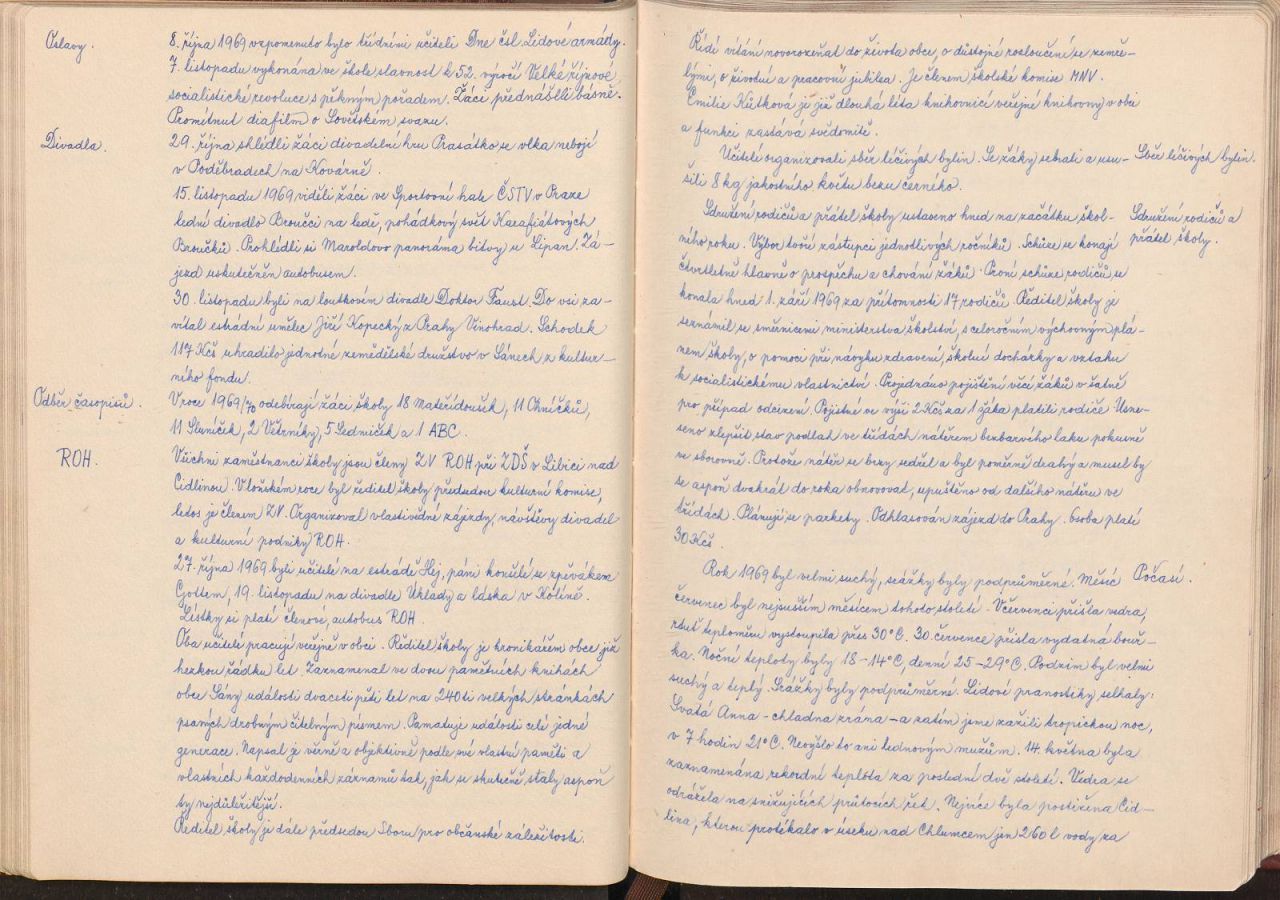 Oslavy.
8. října 1969 vzpomenuto bylo třídními učiteli Dne čsl. Lidové armády.
7. listopadu vykonána ve škole slavnost k 52. výročí Velké říjnové
socialistické revoluce s pěkným pořadem. Žáci přednášeli básně.
Promítnut diafilm o Sovětském svazu.
Divadla.
29. října shlédli žáci divadelní hru Prasátko se vlka nebojí
v Poděbradech na Kovárně.
15. listopadu 1969 viděli žáci ve Sportovní hale ČSTV v Praze
lední divadlo Broučci na ledě, pohádkový svět Karafiátových
Broučků. Prohlédli si Maroldovo panoráma bitvy u Lipan. Zá-
jezd uskutečněn autobusem.
30. listopadu byli na loutkovém divadle Doktor Faust. Do vsi za-
vítal estrádní umělec Jiří Kopecký z Prahy Vinohrad. Schodek
117 Kčs uhradilo jednotné zemědělské družstvo v Sánech z kultur-
ního fondu.
Odběr časopisů.
V roce 1969/70 odebírají žáci školy 18 Mateřídoušek, 11 Ohníčků,
11 Sluníček, 2 Větrníky, 5 Sedmiček a 1 ABC.
ROH.
Všichni zaměstnanci školy jsou členy ZV ROH při ZDŠ v Libici nad
Cidlinou. V loňském roce byl ředitel školy předsedou kulturní komise,
letos je členem ZV. Organizoval vlastivědné zájezdy, návštěvy divadel
a kulturní podniky ROH.
27. října 1969 byli učitelé na estrádě Hej, páni konšelé se zpěvákem
Gottem, 19. listopadu na divadle Úklady a láska v Kolíně.
Lístky si platí členové, autobus ROH.
Oba učitelé pracují veřejně v obci. Ředitel školy je kronikářem obce již
hezkou řádku let. Zaznamenal ve dvou pamětních knihách
obce Sány události dvaceti pěti let na 240ti velkých stránkách
psaných drobným čitelným písmem. Pamatuje události celé jedné
generace. Napsal je věrně a objektivně podle své vlastní paměti a
vlastních každodenních záznamů tak, jak se skutečně staly aspoň
ty nejdůležitější.
Ředitel školy je dále předsedou Sboru pro občanské záležitosti.
Řídí vítání novorozeňat do života obce, o důstojné rozloučení se zemře-
lými, o životní a pracovní jubilea. Je členem školské komise MNV.
Emilie Kůtková je již dlouhá léta knihovnicí veřejné knihovny v obci
a funkci zastává svědomitě.
Učitelé organizovali sběr léčivých bylin. Se žáky sebrali a usu-
šili 8 kg jakostního květu bezu černého.
Sběr léčivých bylin.
Sdružení rodičů a přátel školy ustaveno hned na začátku škol-
ního roku. Výbor tvoří zástupci jednotlivých ročníků. Schůze se konají
čtvrtletně hlavně o prospěchu a chování žáků. První schůze rodičů se
konala hned 1. září 1969 za přítomnosti 17 rodičů. Ředitel školy je
seznámil se směrnicemi ministerstva školství, s celoročním výchovným plá-
nem školy, o pomoci při návyku zdravení, školní docházky a vztahu
k socialistickému vlastnictví. Projednáno pojištění věcí žáků v šatně
pro případ odcizení. Pojistné ve výši 2 Kčs za 1 žáka platili rodiče. Usne-
seno zlepšit stav podlah ve třídách nátěrem bezbarvého laku pokusně
ve sborovně. Protože nátěr se brzy sedřel a byl poměrně drahý a musel by
se aspoň dvakrát do roka obnovovat, upuštěno od dalšího nátěru ve
třídách. Plánují se parkety. Odhlasován zájezd do Prahy. Osoba platí
30 Kčs.
Sdružení rodičů a
přátel školy.
Rok 1969 byl velmi suchý, srážky byly podprůměrné. Měsíc
červenec byl nejsušším měsícem tohoto století. V červenci přišla vedra,
rtuť teploměru vystoupila přes 30°C. 30. července přišla vydatná bouř-
ka. Noční teploty byly 18-14°C, denní 25-29°C. Podzim byl velmi
suchý a teplý. Srážky byly podprůměrné. Lidové pranostiky selhaly:
Svatá Anna - chladna zrána - a zatím jsme zažili tropickou noc,
v 7 hodin 21°C. Nevyšlo to ani ledovým mužům. 14. května byla
zaznamenána rekordní teplota za poslední dvě století. Vedra se
odrážela na snižujících průtocích řek. Nejvíce byla postižena Cid-
lina, kterou protékalo v úseku nad Chlumcem jen 260 l vody za
Počasí.